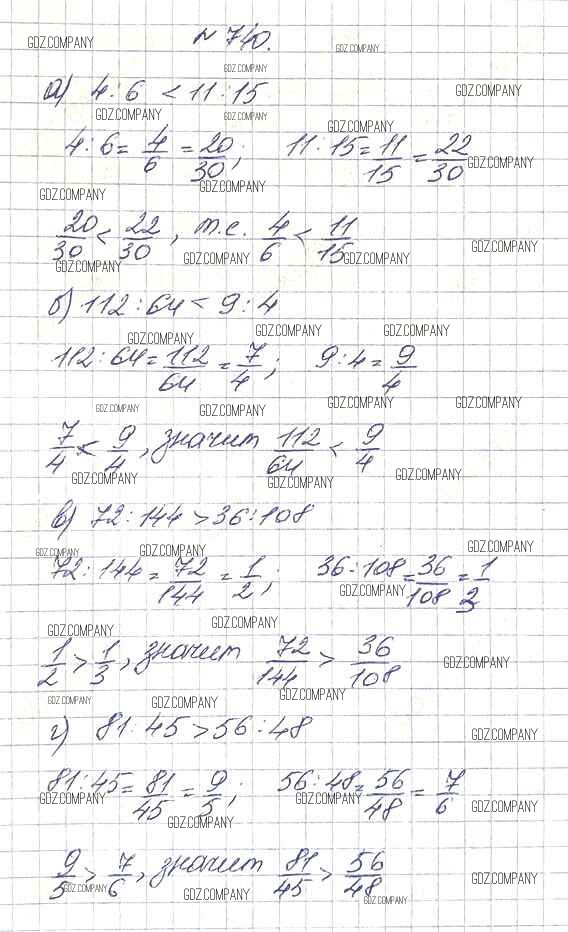 № 740.
а) 4:6 < 11:15
4:6 = 4/6 = 20/30; 11:15 = 11/15 = 22/30
20/30 < 22/30, т.е. 4/6 < 11/15
б) 112:64 < 9:4
112:64 = 112/64 = 7/4; 9:4 = 9/4
7/4 < 9/4, значит 112/64 < 9/4
в) 72:144 > 36:108
72:144 = 72/144 = 1/2; 36:108 = 36/108 = 1/3
1/2 > 1/3, значит 72/144 > 36/108
г) 81:45 > 56:48
81:45 = 81/45 = 9/5; 56:48 = 56/48 = 7/6
9/5 > 7/6, значит 81/45 > 56/48
GDZ.COMPANY